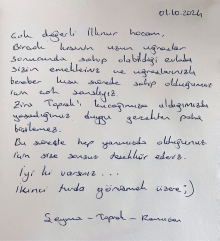 01.10.2024
Çok değerli İlknur hocam,
Birçok kişinin uzun uğraşlar
sonucunda sahip olabildiği evlada
sizin emekleriniz ve uğraşlarınızla
beraber kısa sürede sahip olduğumuz
için çok şanslıyız.
Zira Toprak'ı kucağımıza aldığımızda
yaşadığımız duygu gerçekten paha
biçilemez.
Bu süreçte hep yanımızda olduğunuz
için size sonsuz teşekkür ederiz.
İyi ki varsınız...
İkinci turda görüşmek üzere ;)
Şeyma - Toprak - Ramazan